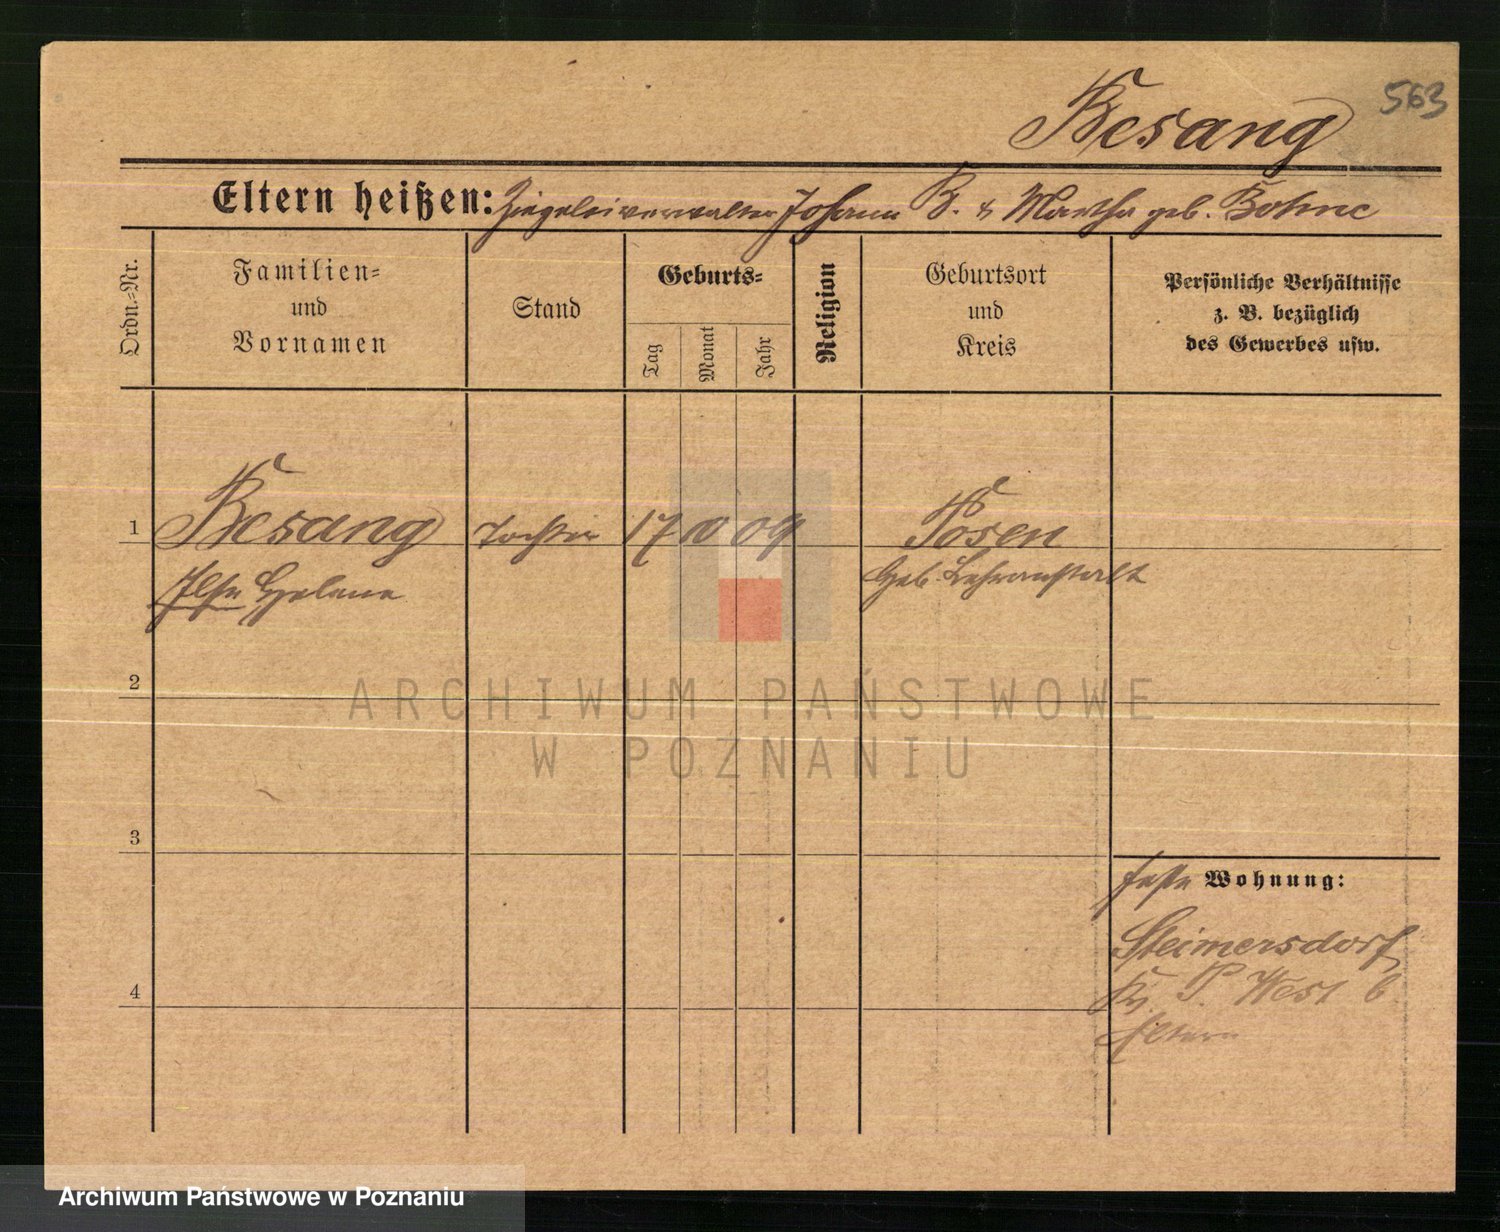 563
Besang
Eltern heißen: Ziegeleiverwalter Johann B. & Martha geb. Bohne
Ordn.-Nr.
Familien-
und
Vornamen
Stand
Geburts-
Tag
Monat
Jahr
Religion
Geburtsort
und
Kreis
Persönliche Verhältnisse
z. B. bezüglich
des Gewerbes usw.
1 Besang Tochter 17 10 09 Posen
Ilse Helene Geb. Lehranstalt
2
ARCHIWUM PAŃSTWOWE
W POZNANIU
3
feste Wohnung:
Steimersdorf
4
Kr. P. West b
Eltern
Archiwum Państwowe w Poznaniu